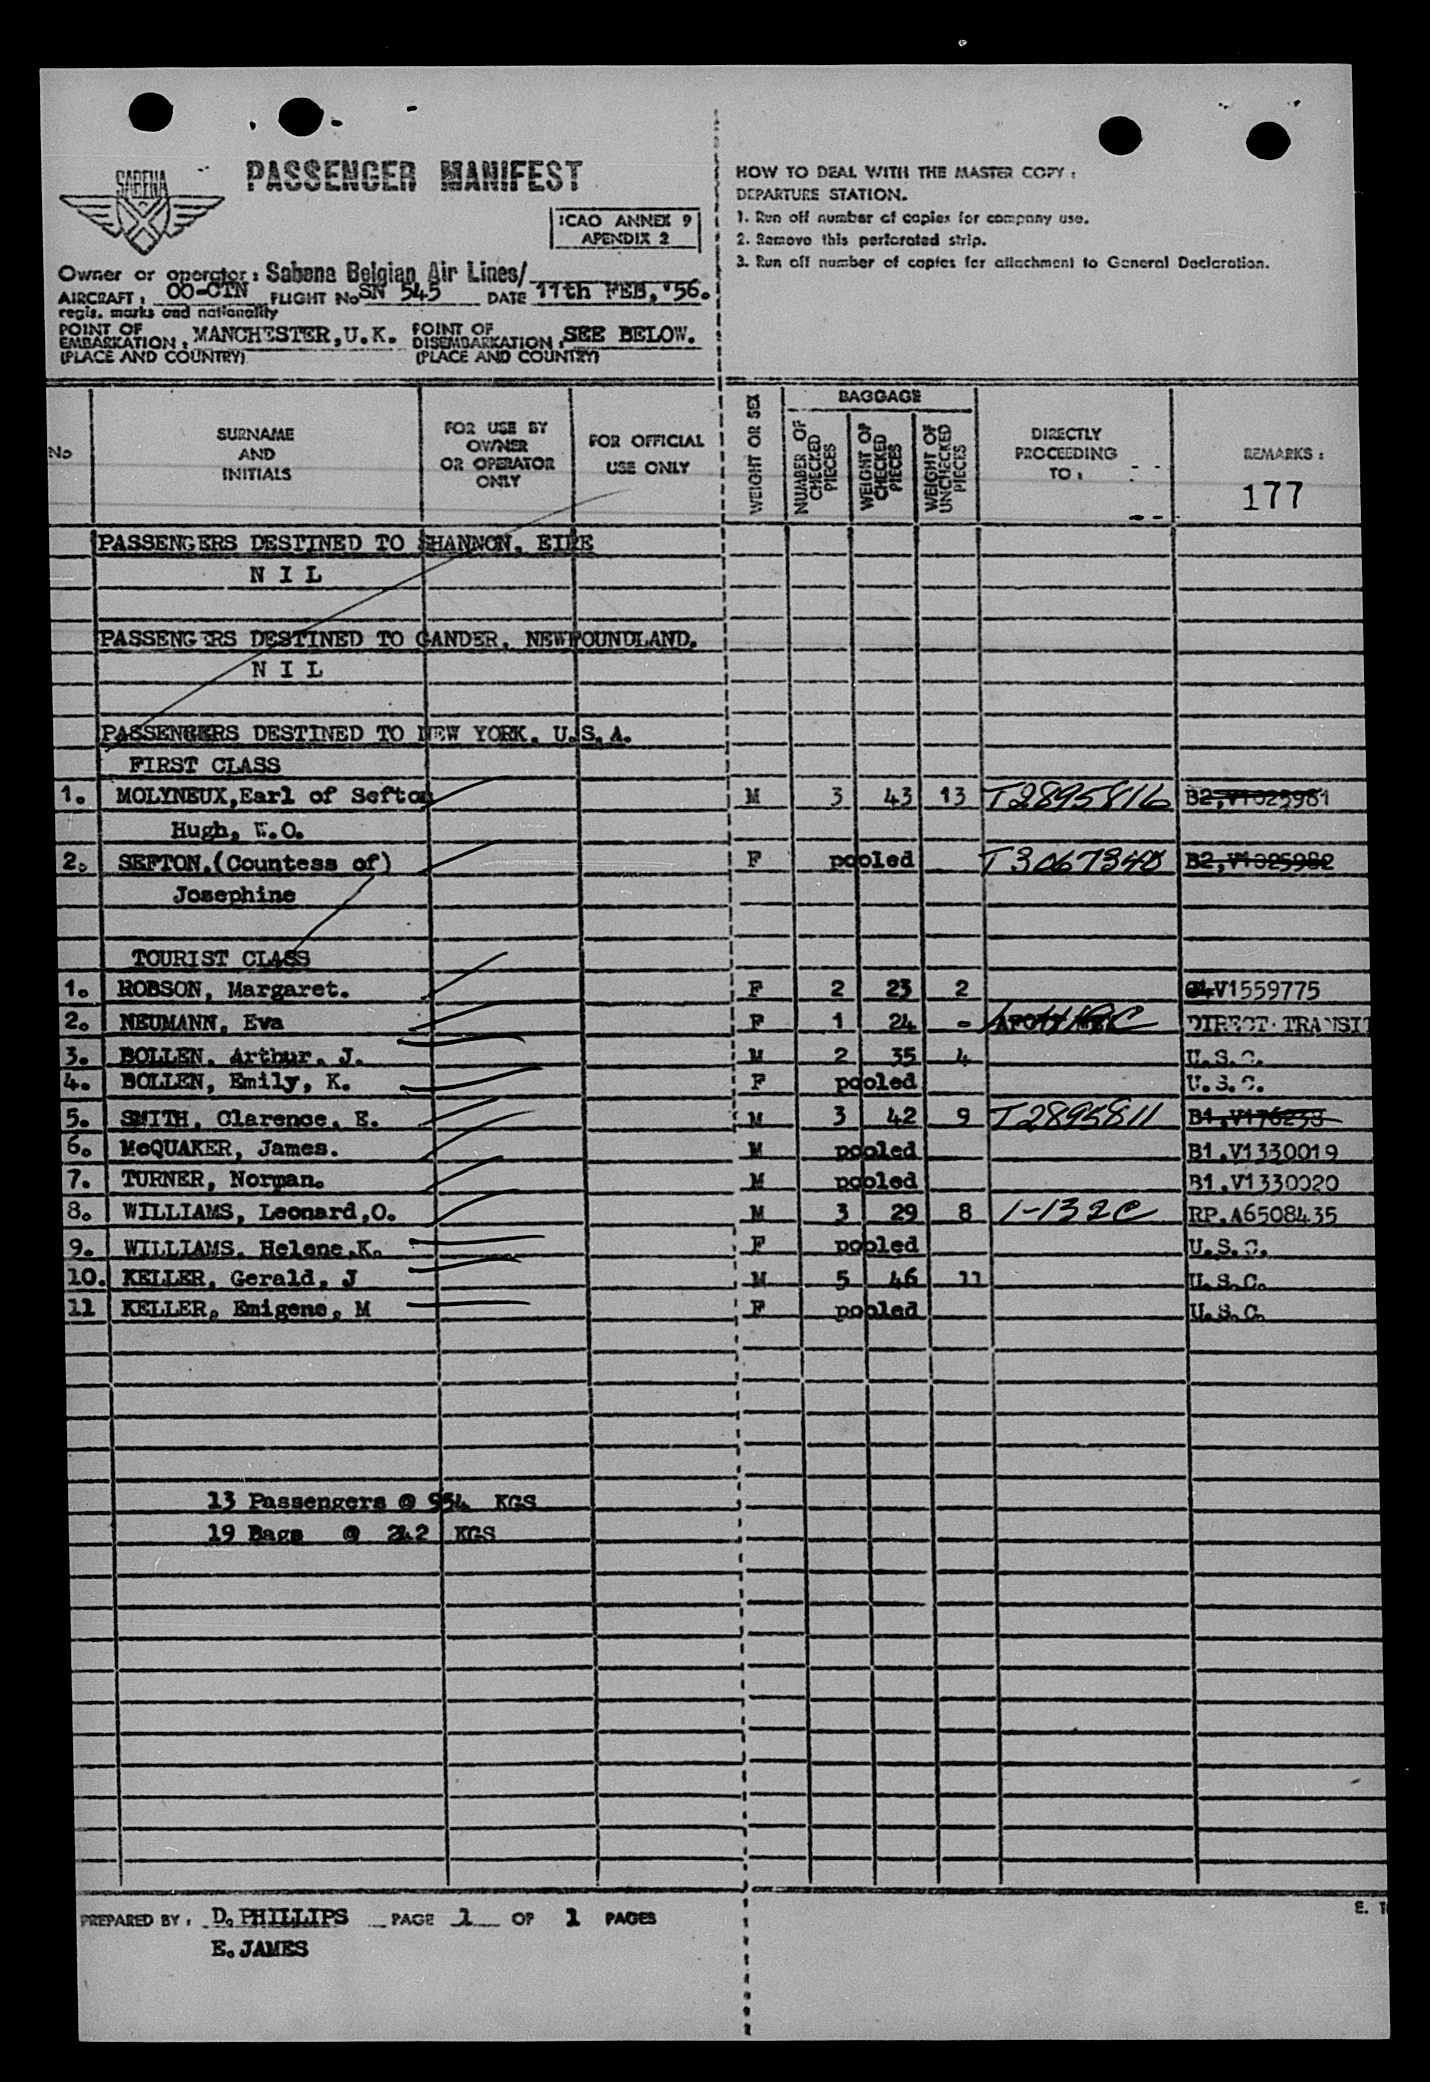 SABENA
PASSENGER MANIFEST
ICAO ANNEX 9
APENDIX 2
Owner or operator: Sabena Belgian Air Lines/
AIRCRAFT: OO-CTN FLIGHT No SN 545 DATE 11th FEB, '56.
regis. marks and nationality
POINT OF EMBARKATION: MANCHESTER,U.K. POINT OF DISEMBARKATION: SEE BELOW.
(PLACE AND COUNTRY) (PLACE AND COUNTRY)
HOW TO DEAL WITH THE MASTER COPY:
DEPARTURE STATION.
1. Run off number of copies for company use.
2. Remove this perforated strip.
3. Run off number of copies for attachment to General Declaration.
No
SURNAME
AND
INITIALS
FOR USE BY
OWNER
OR OPERATOR
ONLY
FOR OFFICIAL
USE ONLY
WEIGHT OR SEX
BAGGAGE
NUMBER OF CHECKED PIECES
WEIGHT OF CHECKED PIECES
WEIGHT OF UNCHECKED PIECES
DIRECTLY
PROCEEDING
TO:
REMARKS:
177
PASSENGERS DESTINED TO SHANNON, EIRE
N I L
PASSENGERS DESTINED TO GANDER, NEWFOUNDLAND.
N I L
PASSENGERS DESTINED TO NEW YORK, U.S.A.
FIRST CLASS
1. MOLYNEUX,Earl of Sefton M 3 43 13 T2895816 B2,V1025981
Hugh, W.O.
2. SEFTON,(Countess of) F pooled T3067340 B2,V1025982
Josephine
TOURIST CLASS
1. ROBSON, Margaret. F 2 23 2 V1559775
2. NEUMANN, Eva F 1 24 - DIRECT TRANSIT
3. BOLLEN, Arthur, J. M 2 35 4 U.S.C.
4. BOLLEN, Emily, K. F pooled U.S.C.
5. SMITH, Clarence, E. M 3 42 9 T2895811 B1,V176239
6. McQUAKER, James. M pooled B1,V1330019
7. TURNER, Norman. M pooled B1,V1330020
8. WILLIAMS, Leonard,O. M 3 29 8 1-132C RP.A6508435
9. WILLIAMS, Helene,K. F pooled U.S.C.
10. KELLER, Gerald, J M 5 46 11 U.S.C.
11 KELLER, Emigene, M F pooled U.S.C.
13 Passengers @ 954 KGS
19 Bags @ 242 KGS
PREPARED BY: D. PHILLIPS PAGE 1 OF 1 PAGES
E. JAMES